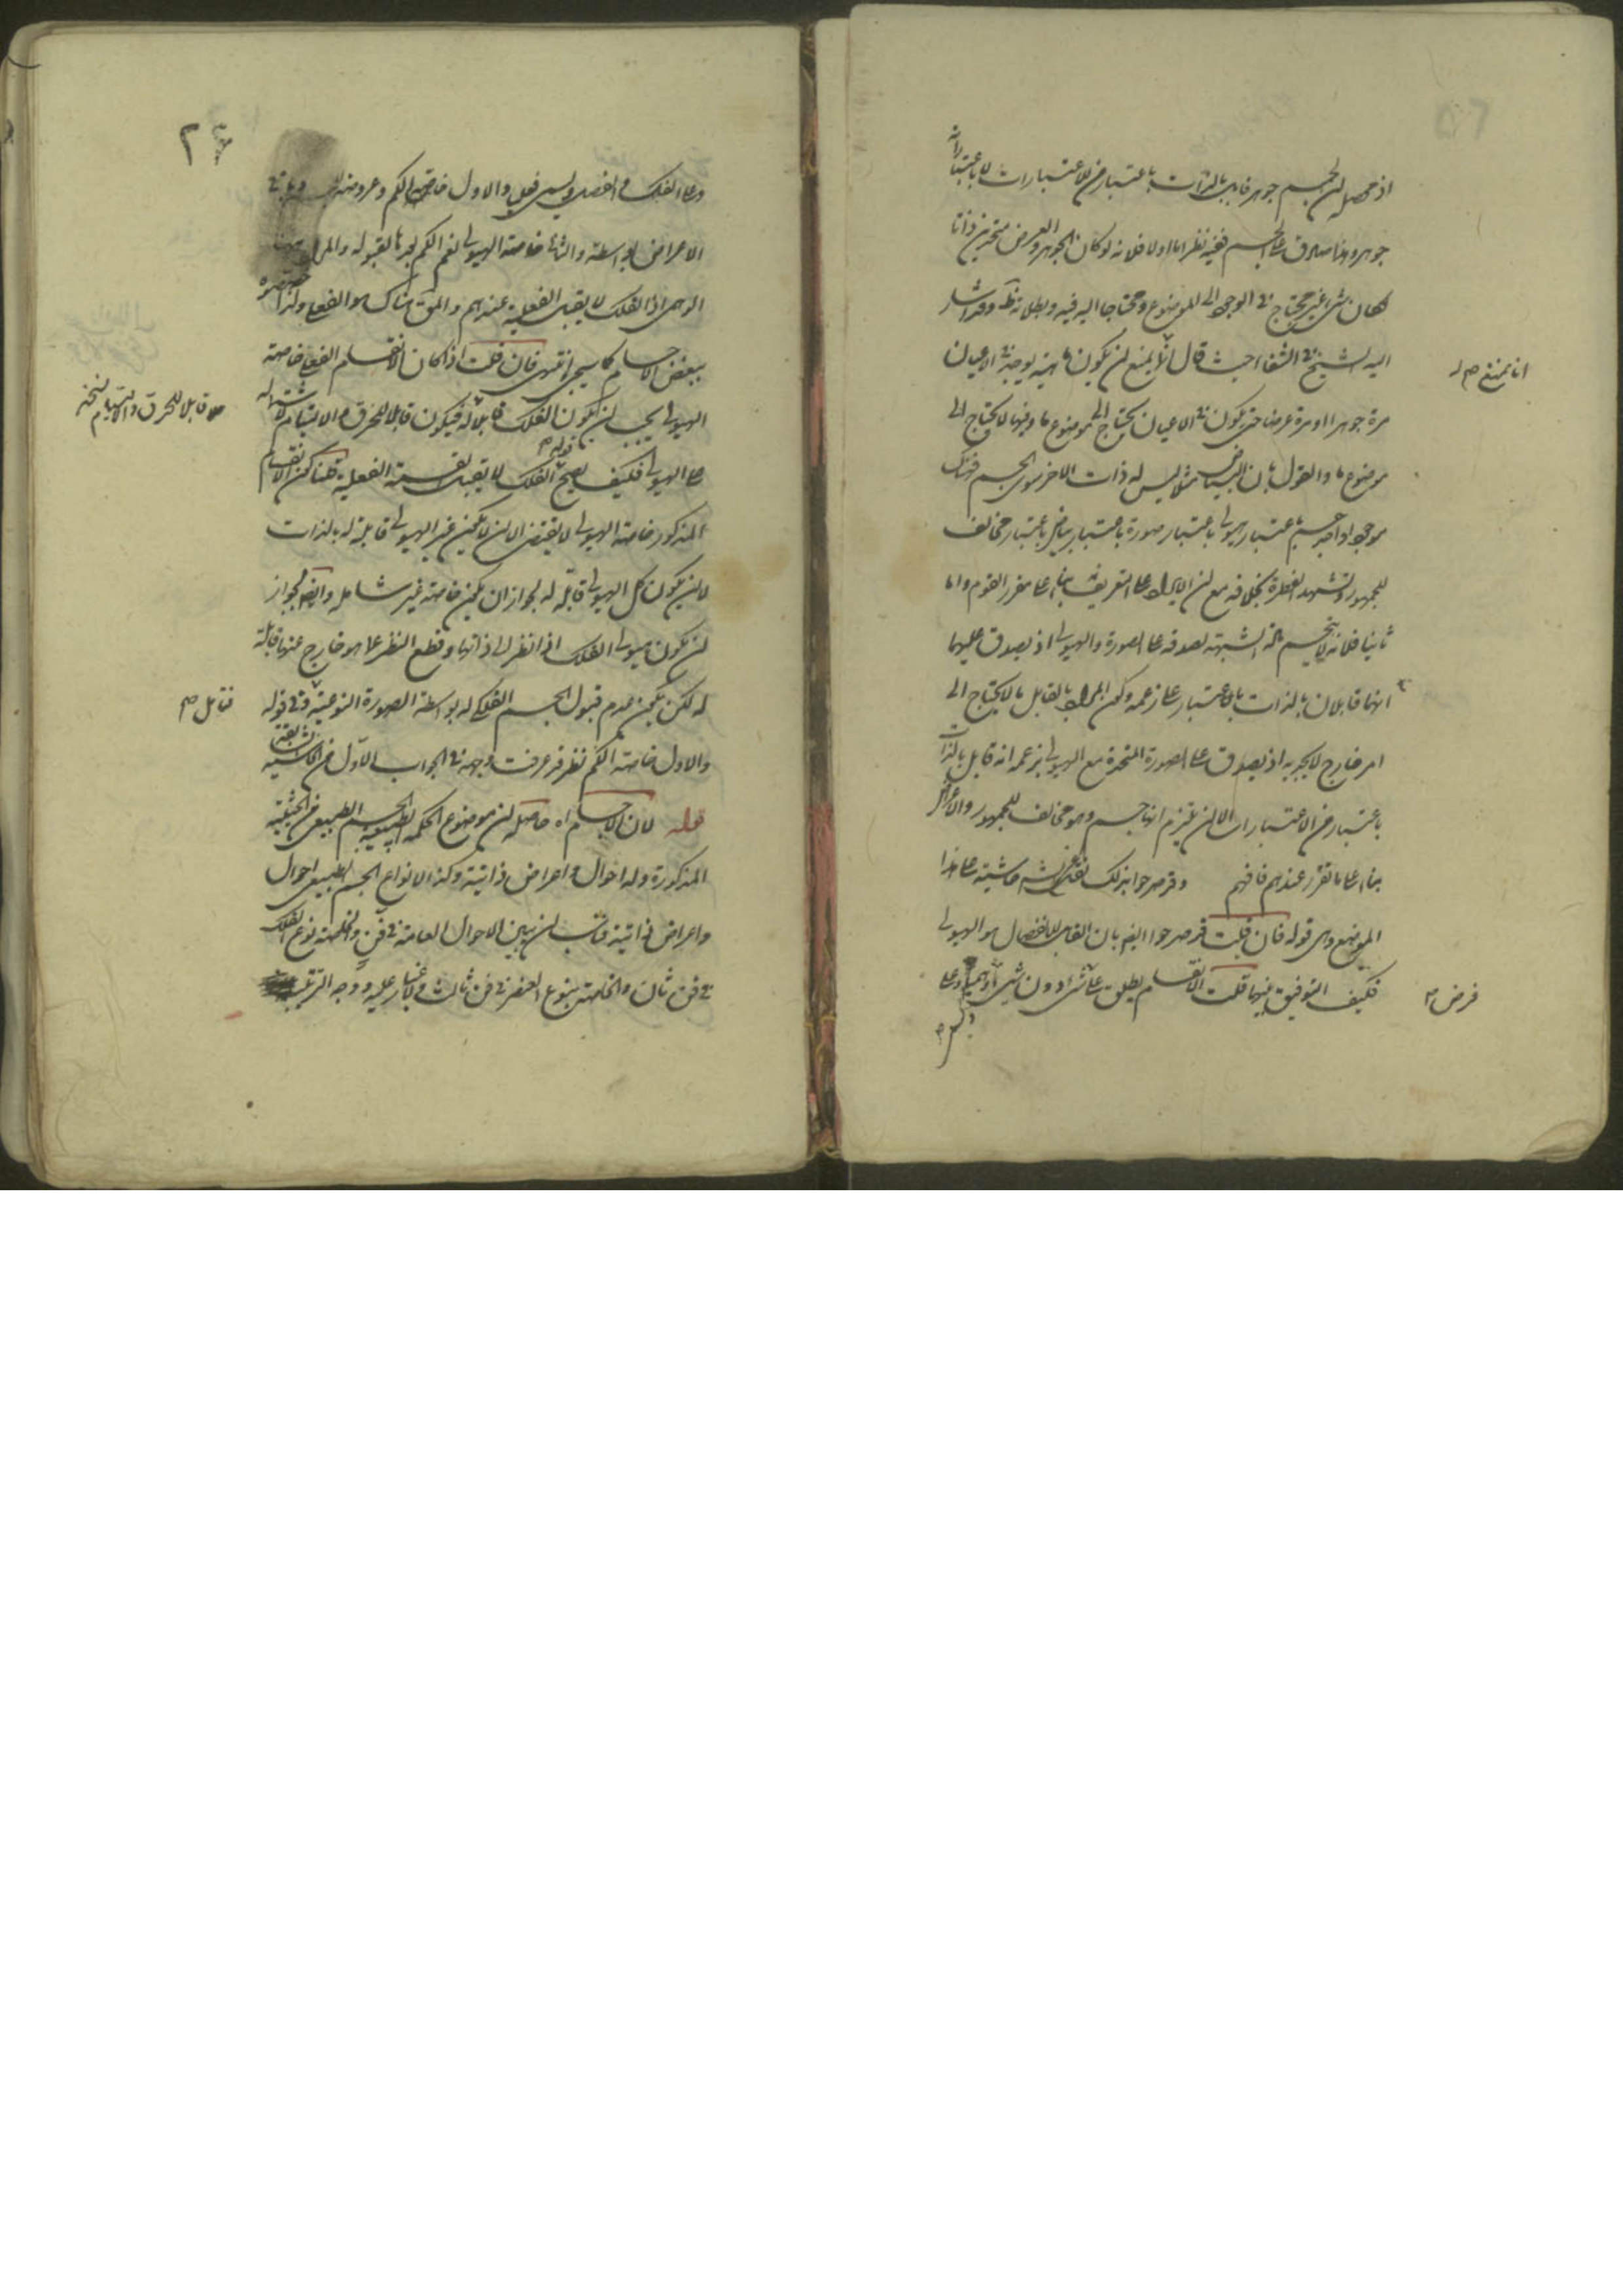 اذ محصله ان الجسم جوهر قابل بالذات باعتبار من الاعتبارات لا باعتبار انه
جوهر وهذا صادق على الجسم ففيه نظر اما اولا فلانه لو كان الجوهر والعرض متحدين ذاتا
لكان شئ غير محتاج في الوجود الى الموضوع ومحتاجا اليه فيه وبطلانه ظ وقد اشار
اليه الشيخ في الشفا حيث قال انا نمنع ان يكون ماهية يوجد في الاعيان
انا نمنع
مرة جوهرا ومرة عرضا حتى يكون في الاعيان يحتاج الى موضوع ما وفيها لا يحتاج الى
موضوع ما والقول بان البياض مثلا ليس له ذات الاخر سوى الجسم فهناك
موجود واحد جسم باعتبار هيولى باعتبار صورة باعتبار بياض باعتبار مخالف
للجمهور وتشهد الفطرة بخلافه مع ان الايراد على التعريف بناء على مقرر القوم واما
ثانيا فلانه لا ينحسم مادة الشبهة لصدقه على الصورة والهيولى اذ يصدق عليهما
انهما قابلان بالذات باعتبار على زعمه وكون المراد بالقابل ما لا يحتاج الى
امر خارج لا يجديه اذ يصدق على الصورة المتحدة مع الهيولى بزعمه انه قابل بالذات
باعتبار من الاعتبارات الا ان يلتزم انها جسم وهو مخالف للجمهور والاعتراض
بناء على ما تقرر عندهم فافهم وقد صرحوا بذلك حاشية على هذا
الموضع وهي قوله فان قلت قد صرحوا ايضا بان القابل للانفصال هو الهيولى
فكيف التوفيق بينهما قلت الانقسام يطلق على فرض شئ دون شئ وهميا وعلى
فرض
وعلى الفلك والاول خاصة الكم وعروضه
الاعراض بواسطته والثاني خاصة الهيولى نعم الكم يعدها لقبوله والمراد ههنا
الوهمي اذ الفلك لا يقبل الفعلية عندهم والمراد هناك هو الفعلي ولذا خصصوه
ببعض الاجسام كما سيجئ انتهى فان قلت اذا كان الانقسام الفعلي خاصة
الهيولى يجب ان يكون الفلك قابلا له فيكون قابلا للخرق والالتيام لاشتماله
قابلا للخرق والالتيام نسخة
على الهيولى فكيف يصح قوله الفلك لا يقبل القسمة الفعلية قلنا كون الانقسام
المذكور خاصة الهيولى لا يقتضي الا ان لا يكون غير الهيولى قابلة له بالذات
لا ان يكون كل الهيولى قابلة له لجواز ان يكون خاصة غير شاملة وايضا يجوز
ان يكون هيولى الفلك اذا نظر الى ذاتها وقطع النظر عما هو خارج عنها قابلة
له لكن يكون عدم قبول الجسم الفلكي له بواسطة الصورة النوعية وفي قوله
فتامل
والاول خاصة الكم نظر قد عرفت وجهه في الجواب الاول من الحاشية السابقة
قوله لان الاجسام اه حاصله ان موضوع الحكمة الطبيعية الجسم الطبيعي من الحيثية
المذكورة وله احوال واعراض ذاتية وكذا لانواع الجسم الطبيعي احوال
واعراض ذاتية فناسب ان يبين الاحوال العامة في فن والخاصة بنوع الفلك
في فن ثان والخاصة بنوع العنصر في فن ثالث ولا غبار عليه ووجه الترتيب